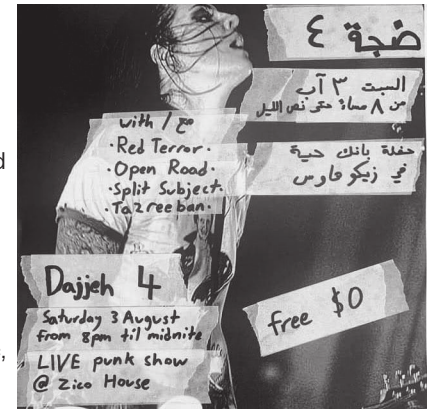 ضجة ٤
السبت ٣ آب
من ٨ مساءً حتى نص الليل
حفلة بانك حية
في زيكو هاوس
with / مع
·Red Terror·
·Open Road·
·Split Subject·
·Tazreeban·
Dajjeh 4
Saturday 3 August
from 8pm til midnite
LIVE punk show
@ Zico House
free $0